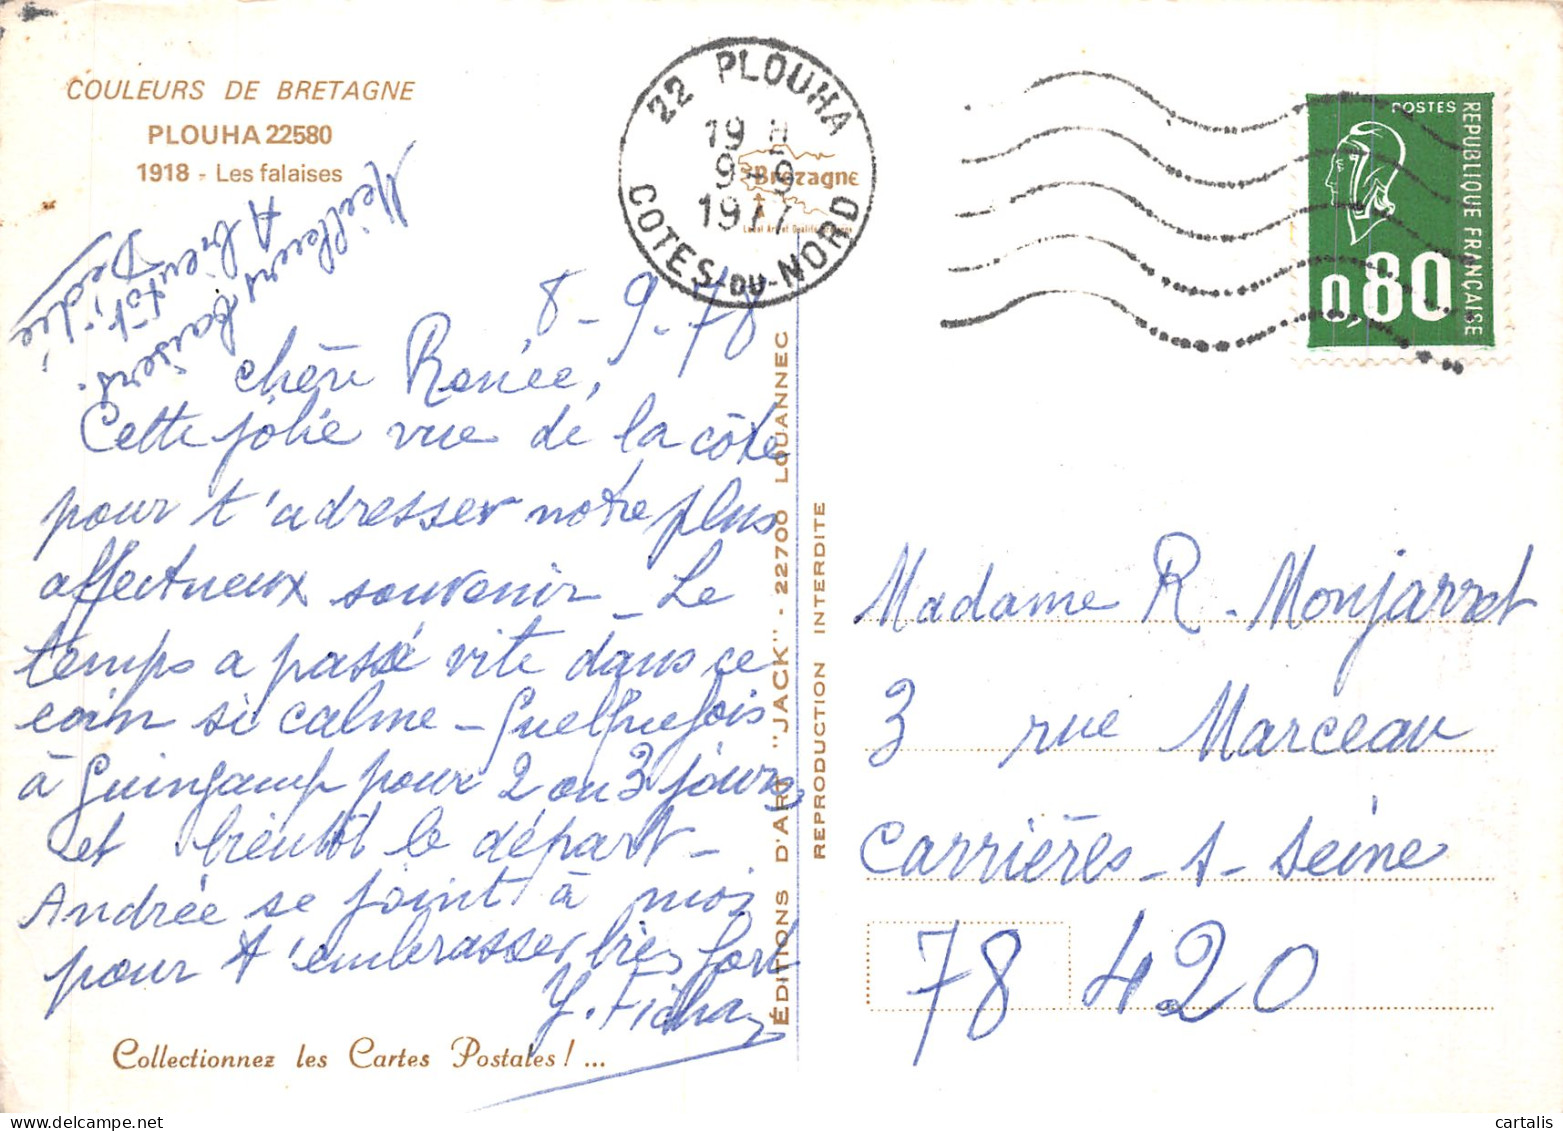 COULEURS DE BRETAGNE
PLOUHA 22580
1918 - Les falaises
Meilleurs baisers.
A bientôt,
Dédée
22 PLOUHA
19 H
9-9
1977
COTES-DU-NORD
Bretagne
POSTES
REPUBLIQUE FRANÇAISE
0,80
8-9-78
Chère Renée,
Cette jolie vue de la côte
pour t'adresser notre plus
affectueux souvenir - Le
temps a passé vite dans ce
coin si calme - Quelquefois
à Guingamp pour 2 ou 3 jours
et bientôt le départ -
Andrée se joint à moi
pour t'embrasser bien fort
Y.
Collectionnez les Cartes Postales ! ...
ÉDITIONS D'ART "JACK" - 22700 LOUANNEC
REPRODUCTION INTERDITE
Madame R. Monjarret
3 rue Marceau
Carrières-s-Seine
78 420
cartalis